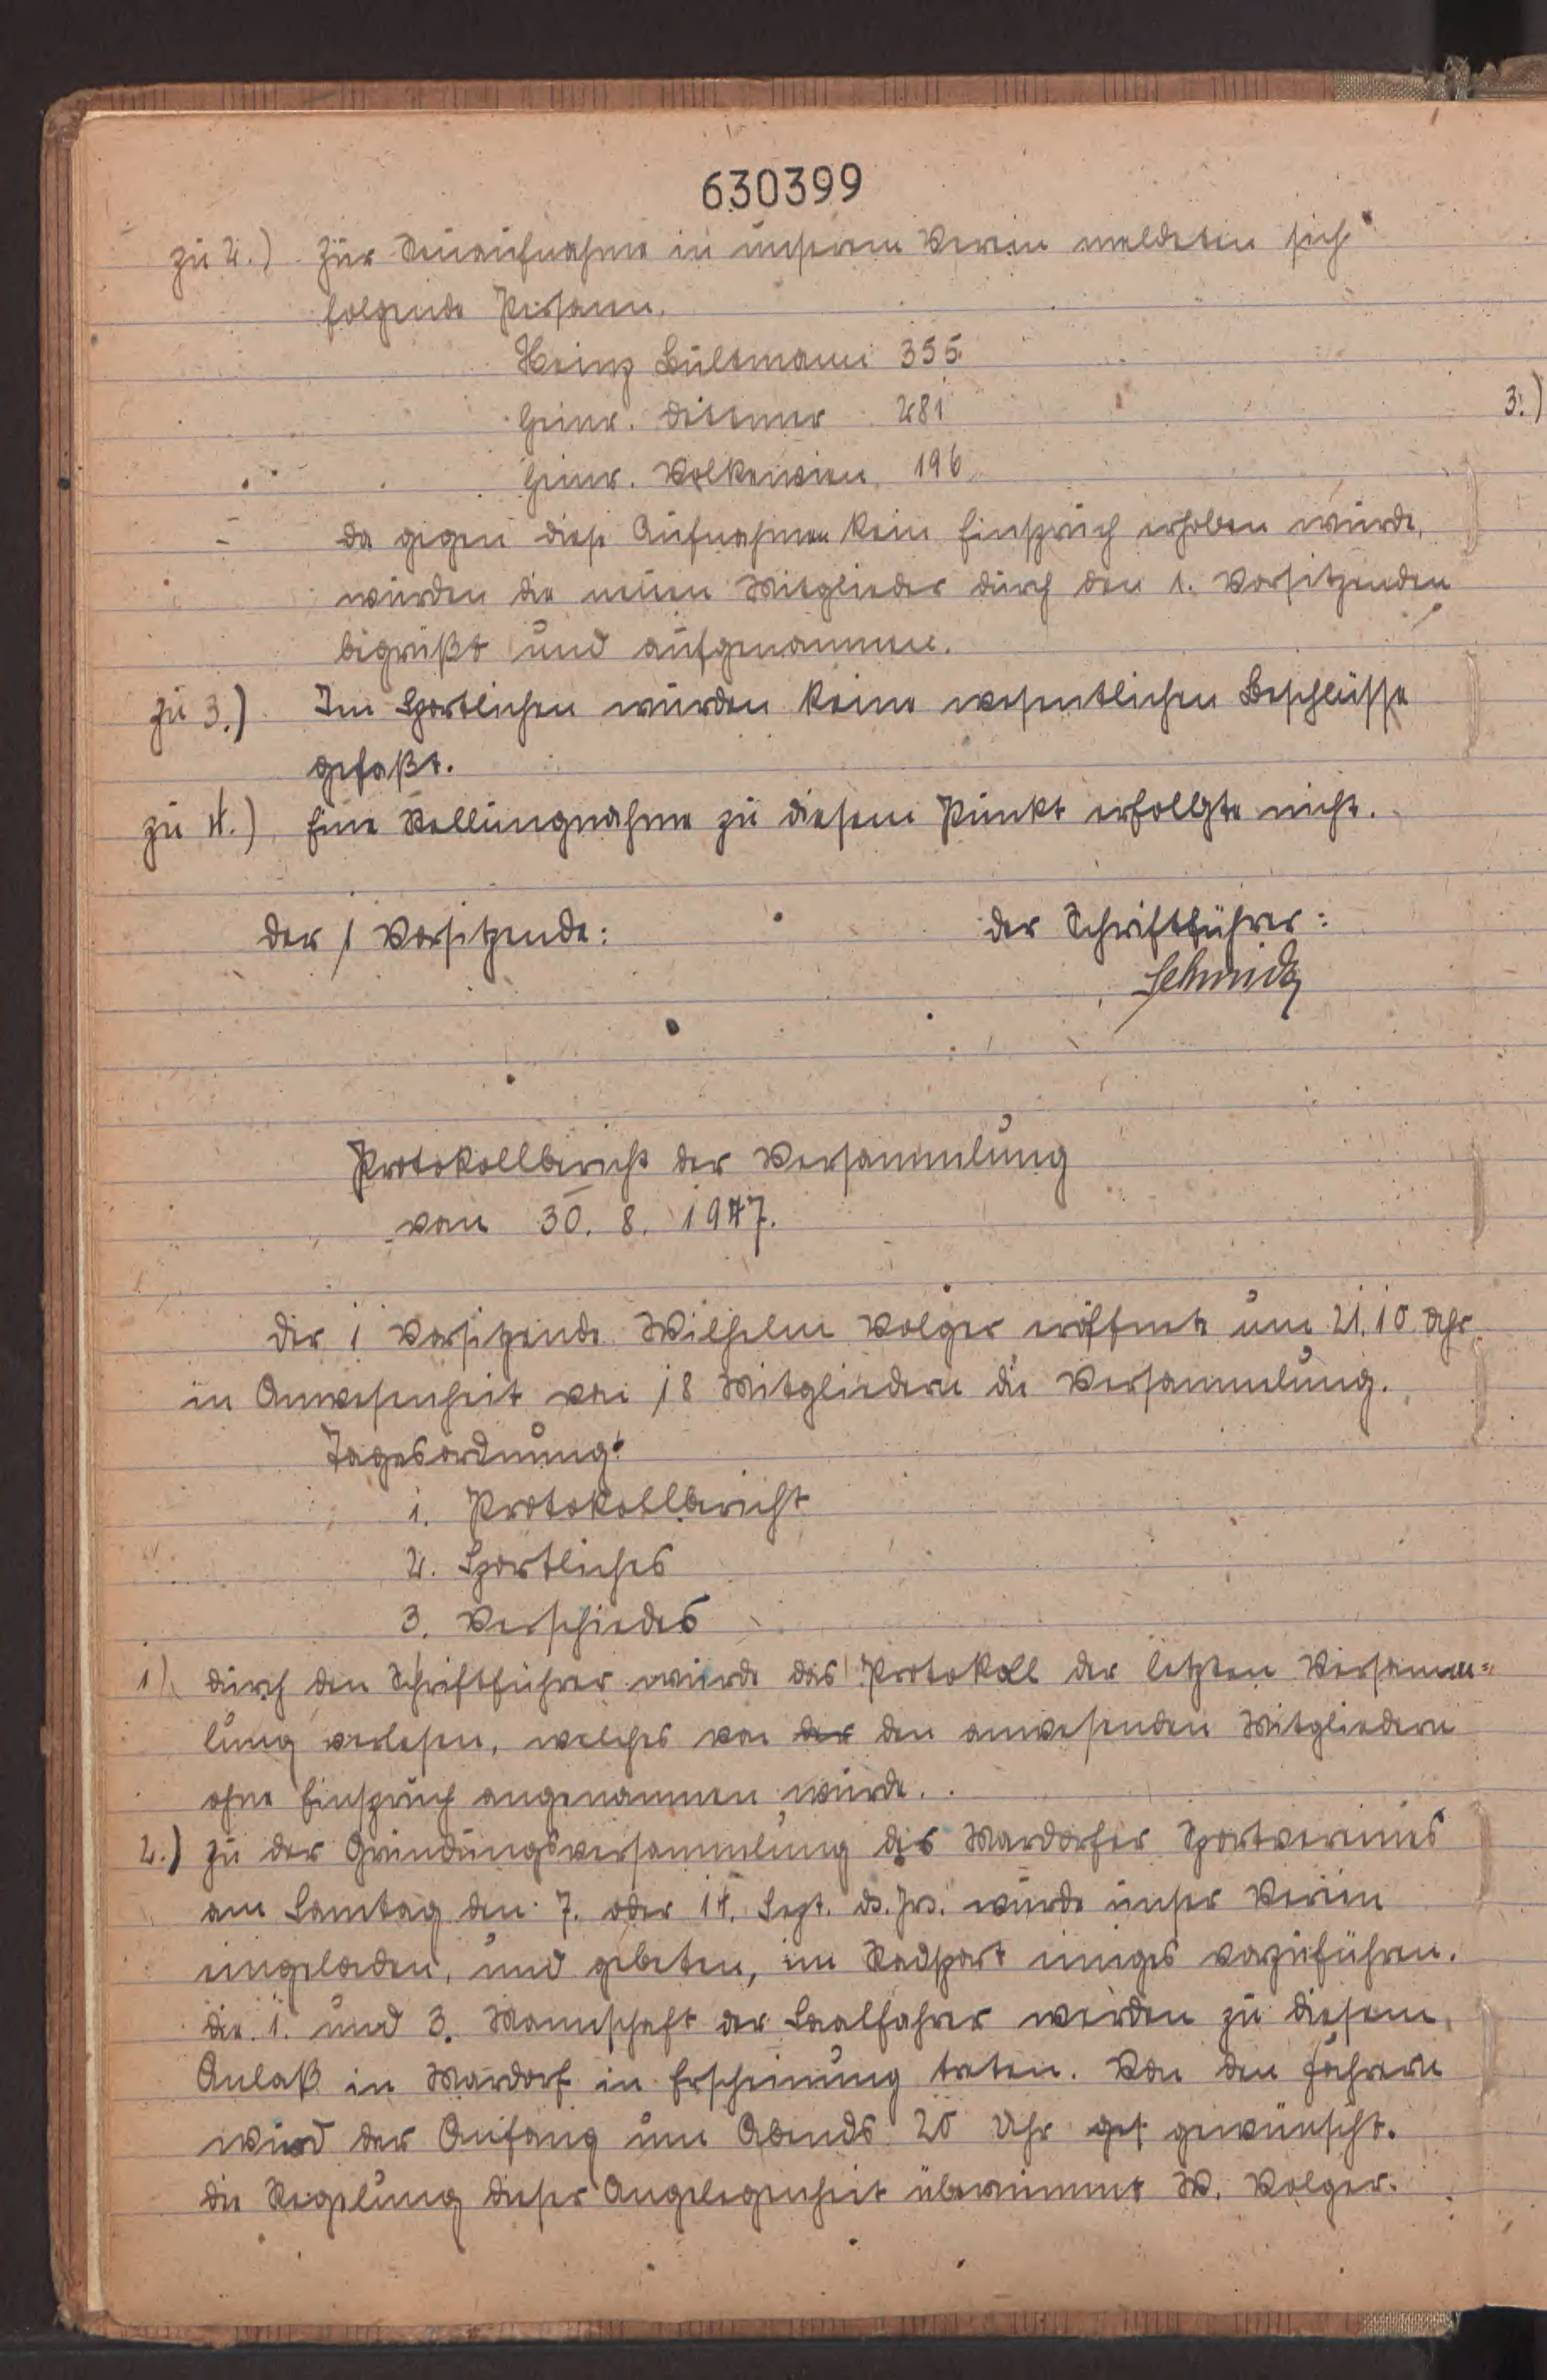 630399
zu 2.) Zur Neuaufnahme in unserem Verein meldeten sich
folgende Personen.
Heinz Bultmann 355
Heinr. Dittmer 281
Heinr. Volkewien 196
3.)
Da gegen diese Aufnahmen kein Einspruch erhoben wurde,
wurden die neuen Mitglieder durch den 1. Vorsitzenden
begrüßt und aufgenommen.
zu 3.) Im Sportlichen wurden keine wesentlichen Beschlüsse
gefaßt.
zu 4.) Eine Stellungnahme zu diesem Punkt erfollgte nicht.
Der 1 Vorsitzende: Der Schriftführer:
Schmidt
Protokollbericht der Versammlung
vom 30. 8. 1947.
Der 1 Vorsitzende Wilhelm Volger eröffnete um 21.10 Uhr
in Anwesenheit von 18 Mitgliedern die Versammlung.
Tagesordnung:
1. Protokollbericht
2. Sportliches
3. Verschiedes
1) Durch den Schriftführer wurde das Protokoll der letzten Versamm=
lung verlesen, welches von der den anwesenden Mitgliedern
ohne Einspruch angenommen wurde.
2.) Zu der Gründungsversammlung des Mardorfer Sportvereines
am Samtag den 7. oder 14. Sept. ds. Jrs. wurde unser Verein
eingeladen, und gebeten, im Radsport einiges vorzuführen.
Die 1. und 3. Mannschaft der Saalfahrer werden zu diesem
Anlaß in Mardorf in Erscheinung treten. Von den Fahrern
wird der Anfang um Abends 20 Uhr get gewünscht.
Die Regelung dieser Angelegenheit übernimmt W. Volger.